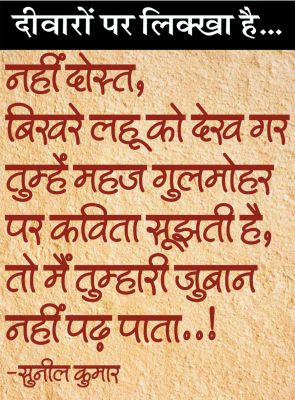 दीवारों पर लिक्खा है...
नहीं दोस्त,
बिखरे लहू को देख गर
तुम्हें महज गुलमोहर
पर कविता सूझती है,
तो मैं तुम्हारी जुबान
नहीं पढ़ पाता..!
-सुनील कुमार